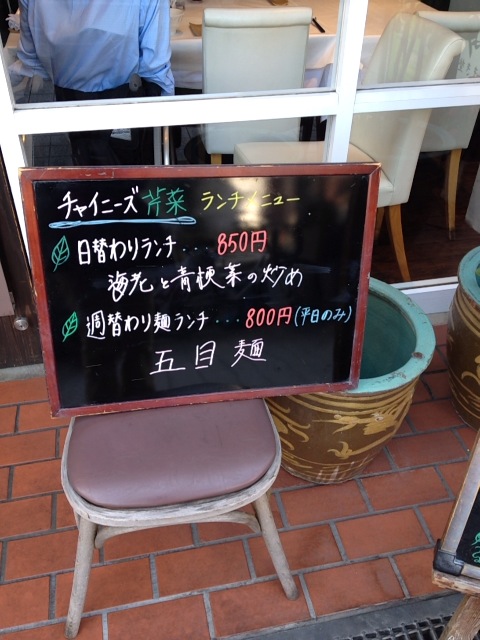 チャイニーズ芹菜 ランチメニュー
日替わりランチ...850円
海老と青梗菜の炒め
週替わり麺ランチ...800円(平日のみ)
五目麺